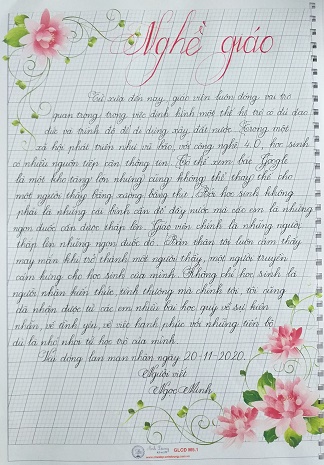 Nghề giáo
Từ xưa đến nay, giáo viên luôn đóng vai trò
quan trọng trong việc định hình một thế hệ trẻ có đủ đạo
đức và trình độ để đi dựng xây đất nước. Trong một
xã hội phát triển như vũ bão, với công nghệ 4.0, học sinh
có nhiều nguồn tiếp cận thông tin. Có thể xem bác Google
là một kho tàng lớn nhưng cũng không thể thay thế cho
một người thầy bằng xương bằng thịt. Bởi học sinh không
phải là những cái bình cần đổ đầy nước mà các em là những
ngọn đuốc cần được thắp lên. Giáo viên chính là những người
thắp lên những ngọn đuốc đó. Bản thân tôi luôn cảm thấy
may mắn khi trở thành một người thầy, một người truyền
cảm hứng cho học sinh của mình. Không chỉ học sinh là
người nhận kiến thức, tình thương mà chính tôi, tôi cũng
đã nhận được từ các em nhiều bài học quý về sự kiên
nhẫn, về tình yêu, về việc hạnh phúc với những tiến bộ
dù là nhỏ nhoi từ học trò của mình.
Vài dòng lan man nhân ngày 20-11-2020.
Người viết
Ngọc Minh
GLCD M5.1